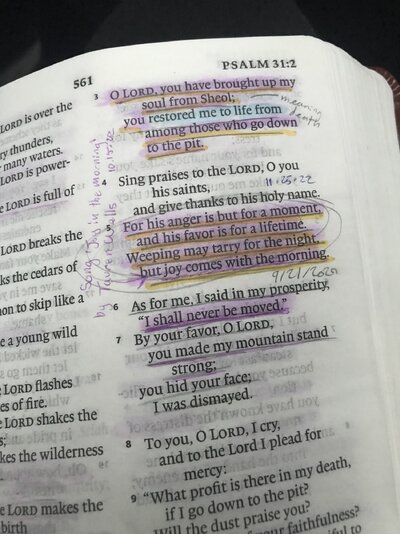 561
PSALM 31:2
LORD is over the
ry thunders,
many waters.
LORD is power-
LORD is full of
LORD breaks the
ks the cedars of
non to skip like a
e a young wild
LORD flashes
es of fire.
LORD shakes the
s;
kes the wilderness
LORD makes the
birth
3 O LORD, you have brought up my
soul from Sheol;
you restored me to life from
among those who go down
to the pit.
meaning
death
4 Sing praises to the LORD, O you
his saints,
11·25·22
and give thanks to his holy name.
5 For his anger is but for a moment,
and his favor is for a lifetime.
Weeping may tarry for the night,
but joy comes with the morning.
9/21/2021
*Song "Joy in the morning"
by Tauren Wells
6 As for me, I said in my prosperity,
“I shall never be moved.”
7 By your favor, O LORD,
you made my mountain stand
strong;
you hid your face;
I was dismayed.
8 To you, O LORD, I cry,
and to the Lord I plead for
mercy:
9 “What profit is there in my death,
if I go down to the pit?
Will the dust praise you?
your faithfulness?